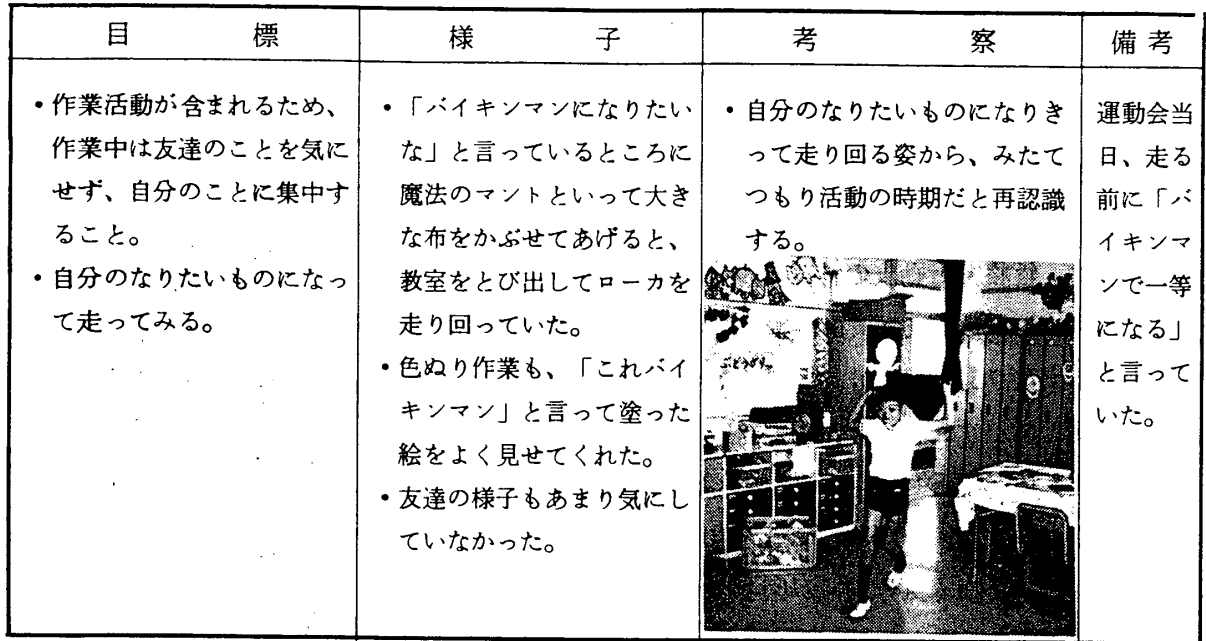 目標
様子
考察
備考
・作業活動が含まれるため、
作業中は友達のことを気に
せず、自分のことに集中す
ること。
・自分のなりたいものになっ
て走ってみる。
・「バイキンマンになりたい
な」と言っているところに
魔法のマントといって大き
な布をかぶせてあげると、
教室をとび出してローカを
走り回っていた。
・色ぬり作業も、「これバイ
キンマン」と言って塗った
絵をよく見せてくれた。
・友達の様子もあまり気にし
ていなかった。
・自分のなりたいものになりき
って走り回る姿から、みたて
つもり活動の時期だと再認識
する。
運動会当
日、走る
前に「バ
イキンマ
ンで一等
になる」
と言って
いた。